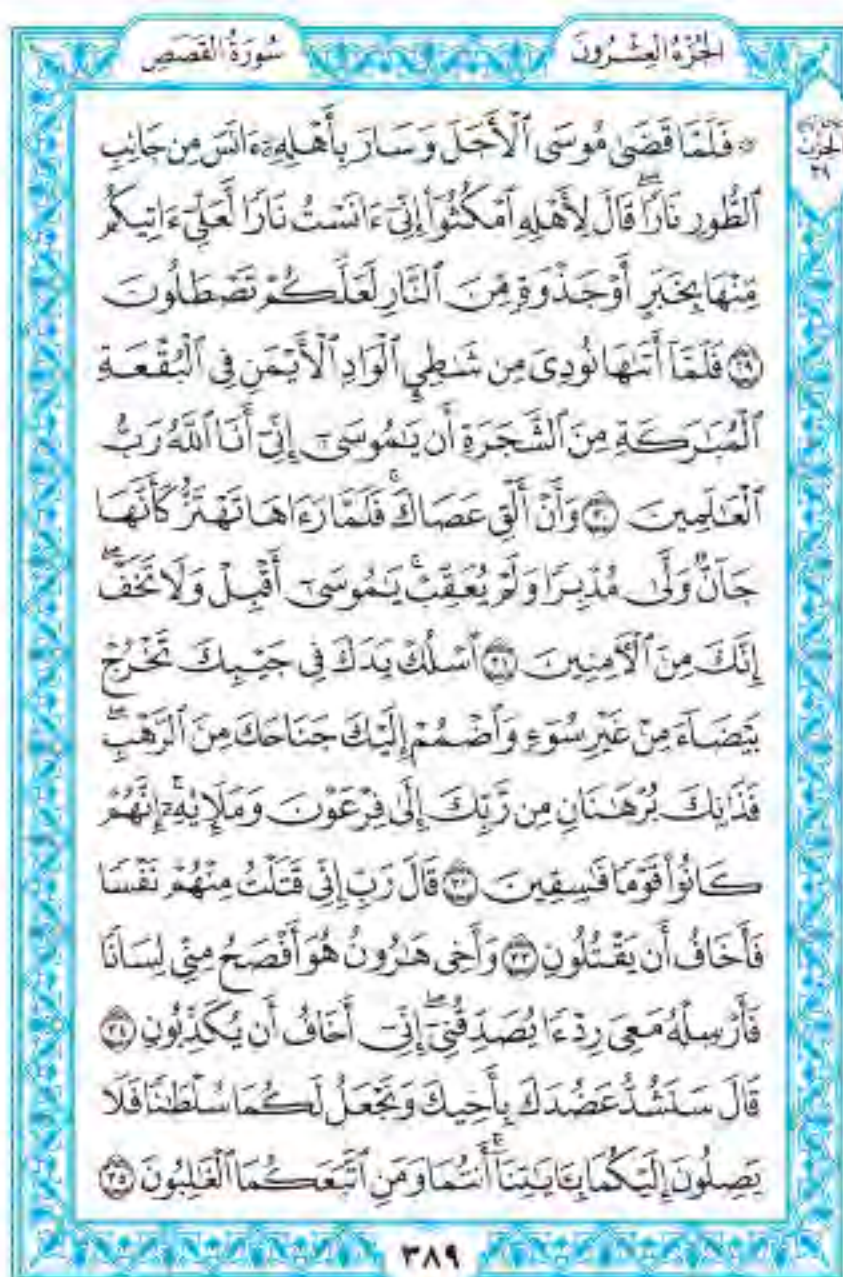 الجُزْءُ العِشْرُونَ
سُورَةُ القَصَصِ
الحزب
٣٩
۞ فَلَمَّا قَضَىٰ مُوسَى ٱلْأَجَلَ وَسَارَ بِأَهْلِهِۦٓ ءَانَسَ مِن جَانِبِ
ٱلطُّورِ نَارًاۖ قَالَ لِأَهْلِهِ ٱمْكُثُوٓا۟ إِنِّىٓ ءَانَسْتُ نَارًا لَّعَلِّىٓ ءَاتِيكُم
مِّنْهَا بِخَبَرٍ أَوْ جَذْوَةٍ مِّنَ ٱلنَّارِ لَعَلَّكُمْ تَصْطَلُونَ
٢٩ فَلَمَّآ أَتَىٰهَا نُودِىَ مِن شَٰطِئِ ٱلْوَادِ ٱلْأَيْمَنِ فِى ٱلْبُقْعَةِ
ٱلْمُبَٰرَكَةِ مِنَ ٱلشَّجَرَةِ أَن يَٰمُوسَىٰٓ إِنِّىٓ أَنَا ٱللَّهُ رَبُّ
ٱلْعَٰلَمِينَ ٣٠ وَأَنْ أَلْقِ عَصَاكَۚ فَلَمَّا رَءَاهَا تَهْتَزُّ كَأَنَّهَا
جَآنٌّ وَلَّىٰ مُدْبِرًا وَلَمْ يُعَقِّبْۚ يَٰمُوسَىٰٓ أَقْبِلْ وَلَا تَخَفْۖ
إِنَّكَ مِنَ ٱلْءَامِنِينَ ٣١ ٱسْلُكْ يَدَكَ فِى جَيْبِكَ تَخْرُجْ
بَيْضَآءَ مِنْ غَيْرِ سُوٓءٍ وَٱضْمُمْ إِلَيْكَ جَنَاحَكَ مِنَ ٱلرَّهْبِۖ
فَذَٰنِكَ بُرْهَٰنَانِ مِن رَّبِّكَ إِلَىٰ فِرْعَوْنَ وَمَلَإِي۟هِۦٓۚ إِنَّهُمْ
كَانُوا۟ قَوْمًا فَٰسِقِينَ ٣٢ قَالَ رَبِّ إِنِّى قَتَلْتُ مِنْهُمْ نَفْسًا
فَأَخَافُ أَن يَقْتُلُونِ ٣٣ وَأَخِى هَٰرُونُ هُوَ أَفْصَحُ مِنِّى لِسَانًا
فَأَرْسِلْهُ مَعِىَ رِدْءًا يُصَدِّقُنِىٓۖ إِنِّىٓ أَخَافُ أَن يُكَذِّبُونِ ٣٤
قَالَ سَنَشُدُّ عَضُدَكَ بِأَخِيكَ وَنَجْعَلُ لَكُمَا سُلْطَٰنًا فَلَا
يَصِلُونَ إِلَيْكُمَا بِـَٔايَٰتِنَآۚ أَنتُمَا وَمَنِ ٱتَّبَعَكُمَا ٱلْغَٰلِبُونَ ٣٥
٣٨٩